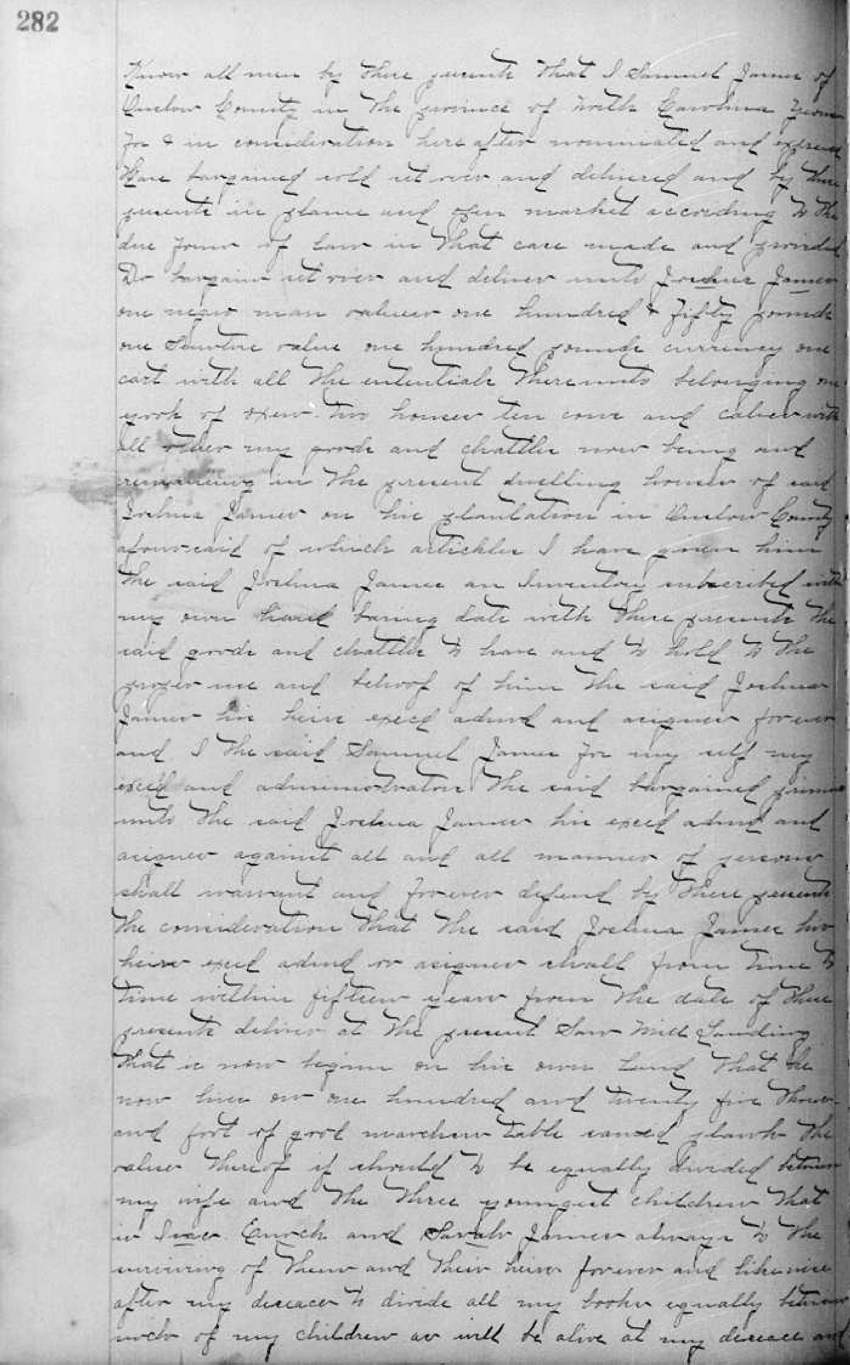 282
Know all men by these presents that I Samuel James of
Onslow County in the province of North Carolina
for & in consideration here after nominated and
Have bargained sold set over and delivered and by these
presents in plaine and open market according to the
due form of Law in that case made and provided
Do bargain set over and deliver unto Joshua James
one negro man values one hundred & fifty pounds
one value one hundred pounds currency one
cart with all the thereunto belonging one
yook of oxen two horses ten cows and calves with
all other my goods and chattles now being and
remaining in the present dwelling houses of said
Joshua James on his plantation in Onslow County
aforesaid of which artickles I have given him
the said Joshua James an Inventory subscribed with
my own hand baring date with these presents the
said goods and chattles to have and to hold to the
proper use and behoof of him the said Joshua
James his heirs execd admd and asignes for ever
and I the said Samuel James for my self my
execd and administrators the said bargained
unto the said Joshua James his execd admd and
asignes against all and all manner of persons
shall warrant and forever defend by these presents
the consideration that the said Joshua James his
heirs execd admd or asignes shall from time to
time within fifteen years from the date of these
presents deliver at the present Saw Mill Landing
that is now begun on his own Land that he
now lives on one hundred and twenty five thous-
and foot of good marchentable sawed plank the
value thereof if should to be equally divided between
my wife and the three youngest children that
is Enoch and Sarah James always to the
surviving of them and their heirs forever and likewise
after my deceace to divide all my books equally between
such of my children as will be alive at my deceace and